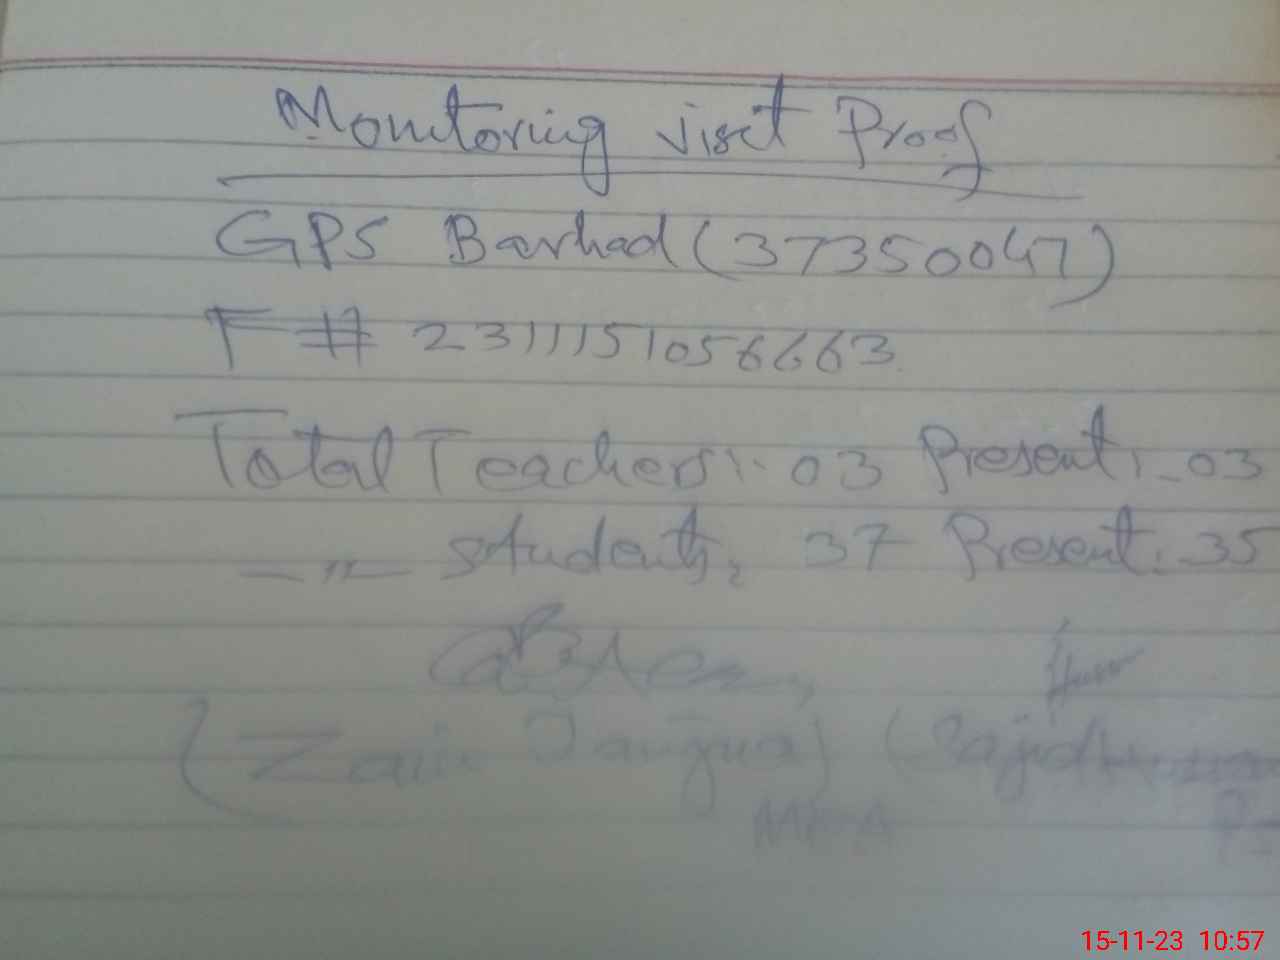 Monitoring visit Proof
GPS Barhad (37350047)
F # 2311151056663
Total Teachers:- 03 Present:- 03
—〃— students, 37 Present: 35
(Zain Janjua) (Sajid
15-11-23 10:57